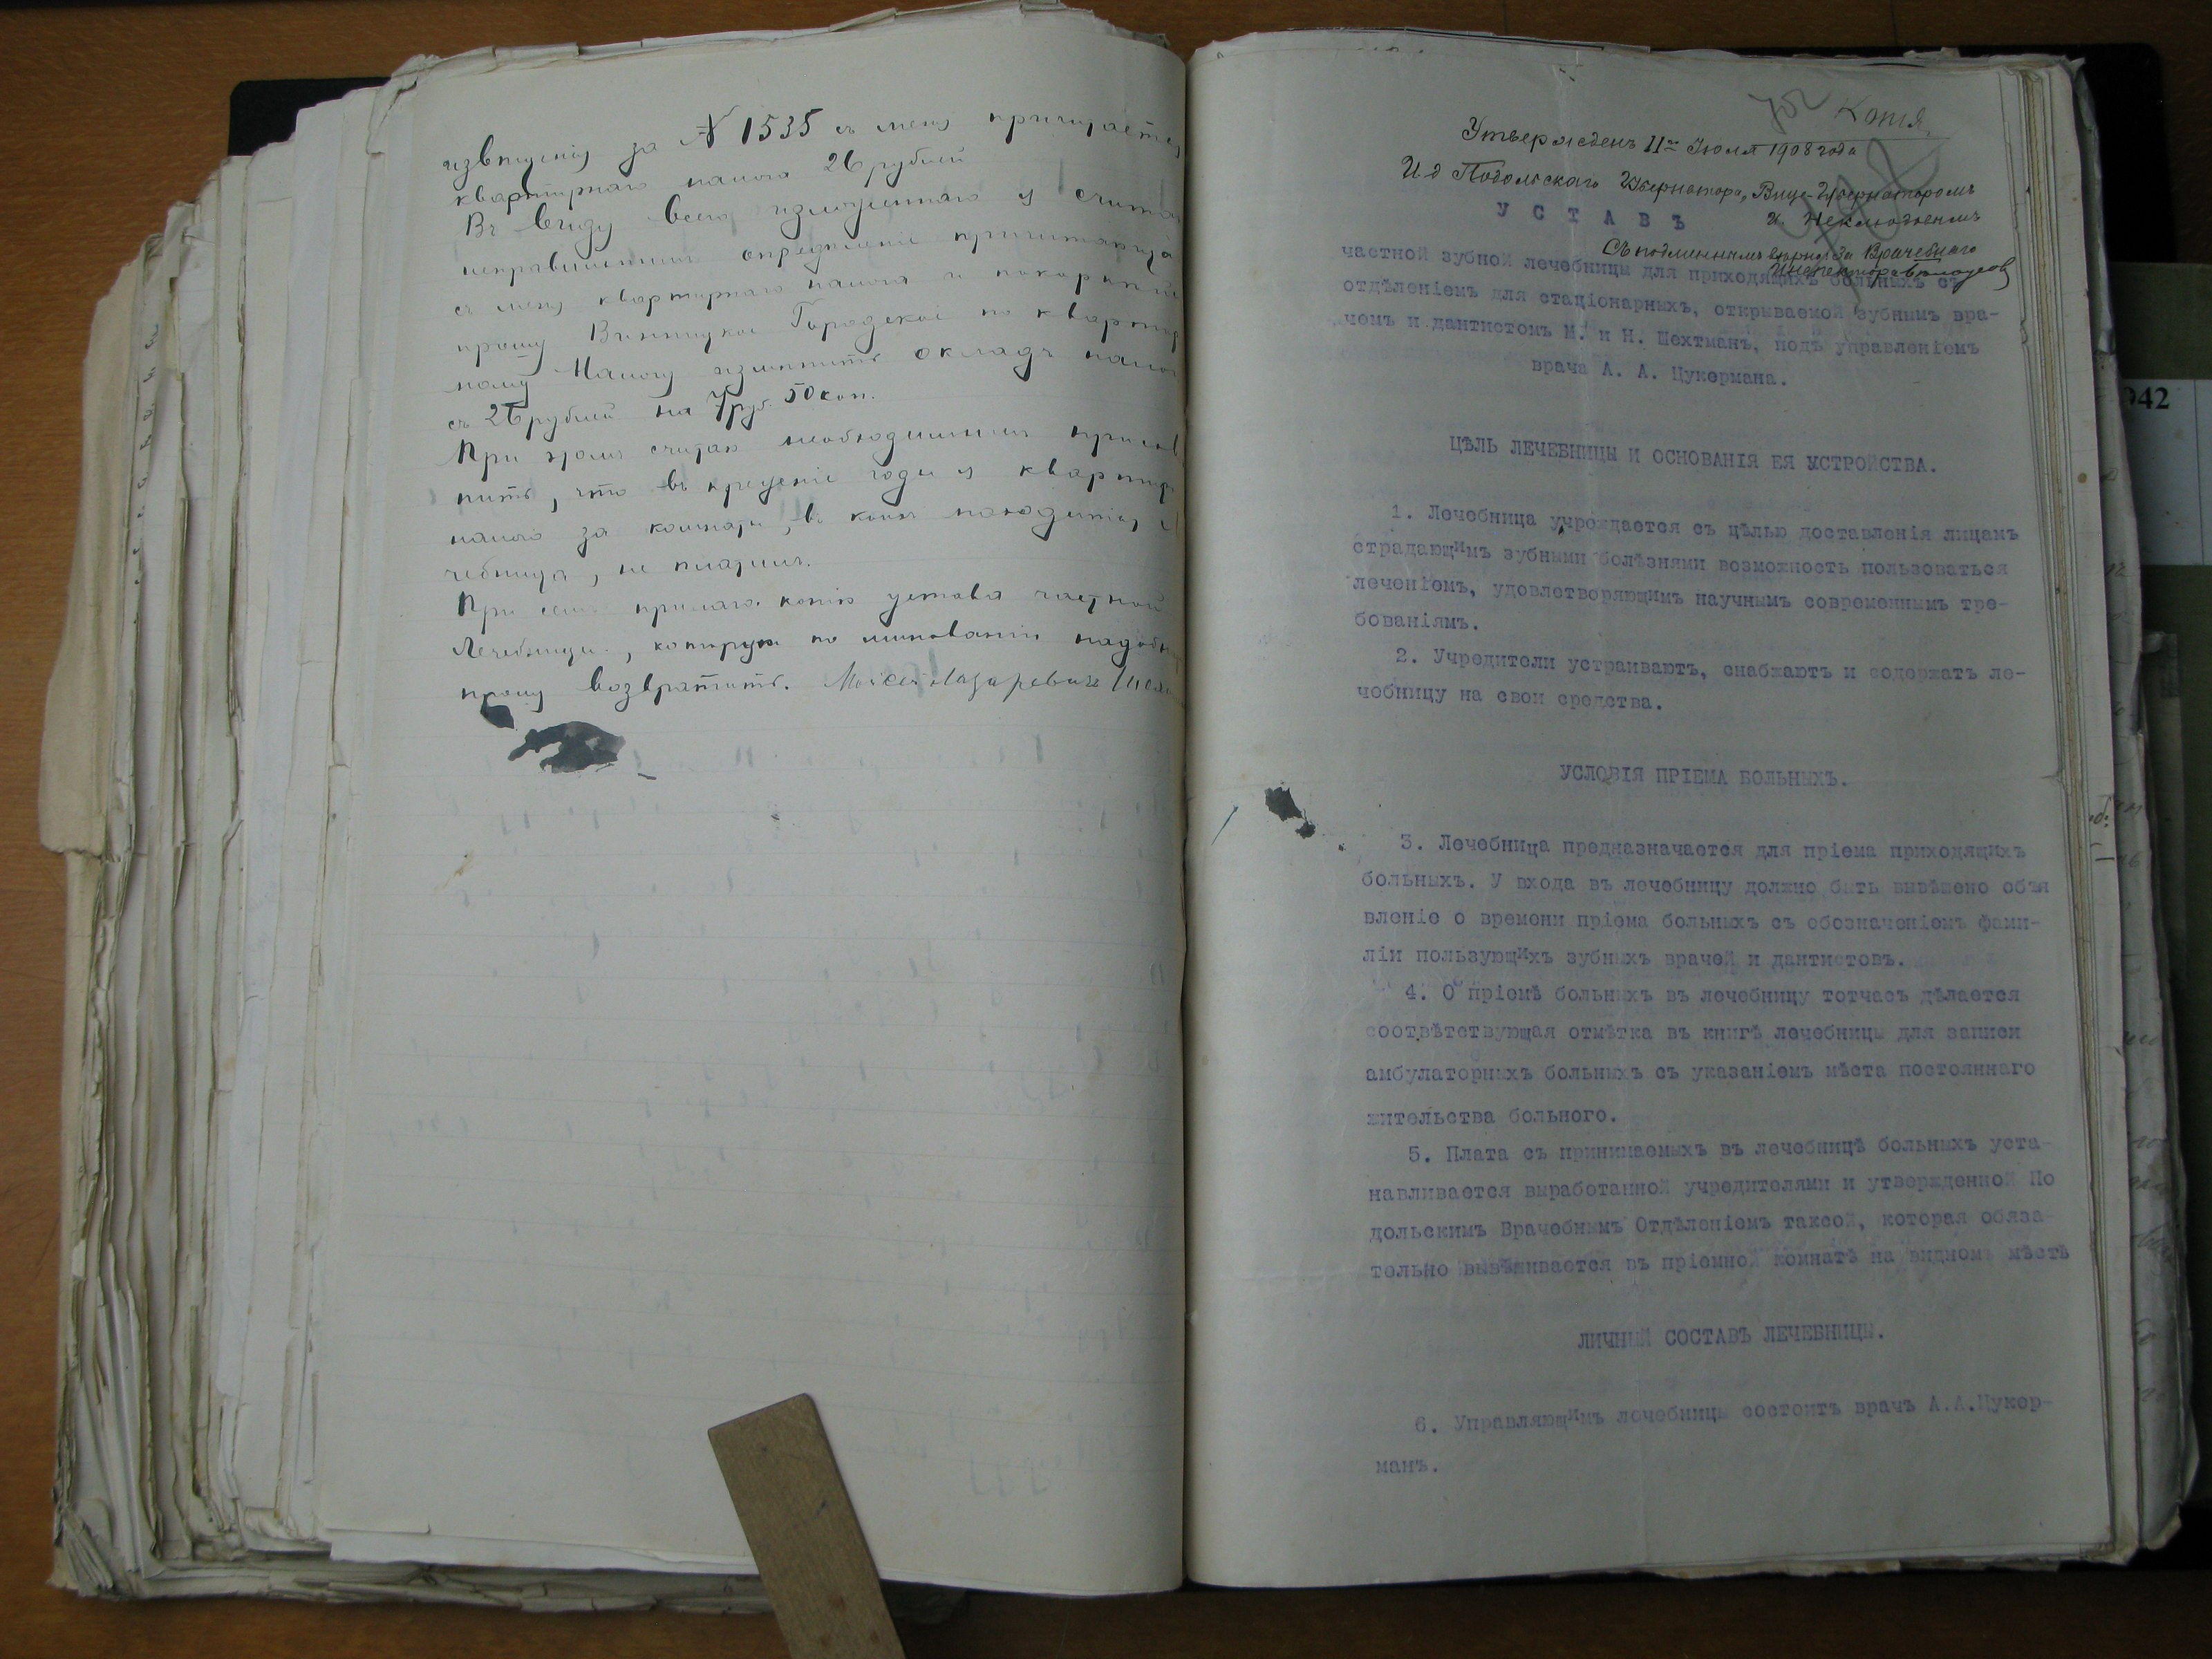 извѣщенія за № 1535 съ меня причитается
квартирнаго налога 26 рублей
Въ виду всего изложеннаго я считаю
неправильнымъ опредѣленіе причитающа
съ меня квартирнаго налога и покорнѣй
прошу Винницкое Городское по квартир
ному Налогу измѣнить окладъ налог
съ 26 рублей на 7 руб. 50 коп.
При этомъ считаю необходимымъ присов
нить, что въ прошломъ году я квартир
налога за комнаты, въ коихъ находится л
чебница, не платилъ.
При семъ прилагаю копію устава частной
Лечебницы, которую по минованіи надобн
прошу возвратить. Моисей Лазаревичъ Шехт
Копія.
Утвержденъ 11го Іюля 1908 года
И д Подольскаго Губернатора, Вице-Губернаторомъ
У С Т А В Ъ
И. Неклюдовымъ
Съ подлиннымъ вѣрно: За Врачебнаго
Инспектора
частной зубной лечебницы для приходящихъ больныхъ съ
отдѣленіемъ для стаціонарныхъ, открываемой зубнымъ вра-
чемъ и дантистомъ М. и Н. Шехтманъ, подъ управленіемъ
врача А. А. Цукермана.
ЦѢЛЬ ЛЕЧЕБНИЦЫ И ОСНОВАНІЯ ЕЯ УСТРОЙСТВА.
1. Лечебница учреждается съ цѣлью доставленія лицамъ
страдающимъ зубными болѣзнями возможность пользоваться
леченіемъ, удовлетворяющимъ научнымъ современнымъ тре-
бованіямъ.
2. Учредители устраиваютъ, снабжаютъ и содержатъ ле-
чебницу на свои средства.
УСЛОВІЯ ПРІЕМА БОЛЬНЫХЪ.
3. Лечебница предназначается для пріема приходящихъ
больныхъ. У входа въ лечебницу должно быть вывѣшено объя
вленіе о времени пріема больныхъ съ обозначеніемъ фами-
ліи пользующихъ зубныхъ врачей и дантистовъ.
4. О пріемѣ больныхъ въ лечебницу тотчасъ дѣлается
соотвѣтствующая отмѣтка въ книгѣ лечебницы для записи
амбулаторныхъ больныхъ съ указаніемъ мѣста постояннаго
жительства больного.
5. Плата съ принимаемыхъ въ лечебницѣ больныхъ уста-
навливается выработанной учредителями и утвержденной По
дольскимъ Врачебнымъ Отдѣленіемъ таксой, которая обяза-
тельно вывѣшивается въ пріемной комнатѣ на видномъ мѣстѣ
ЛИЧНЫЙ СОСТАВЪ ЛЕЧЕБНИЦЫ.
6. Управляющимъ лечебницы состоитъ врачъ А.А.Цукер-
манъ.
942